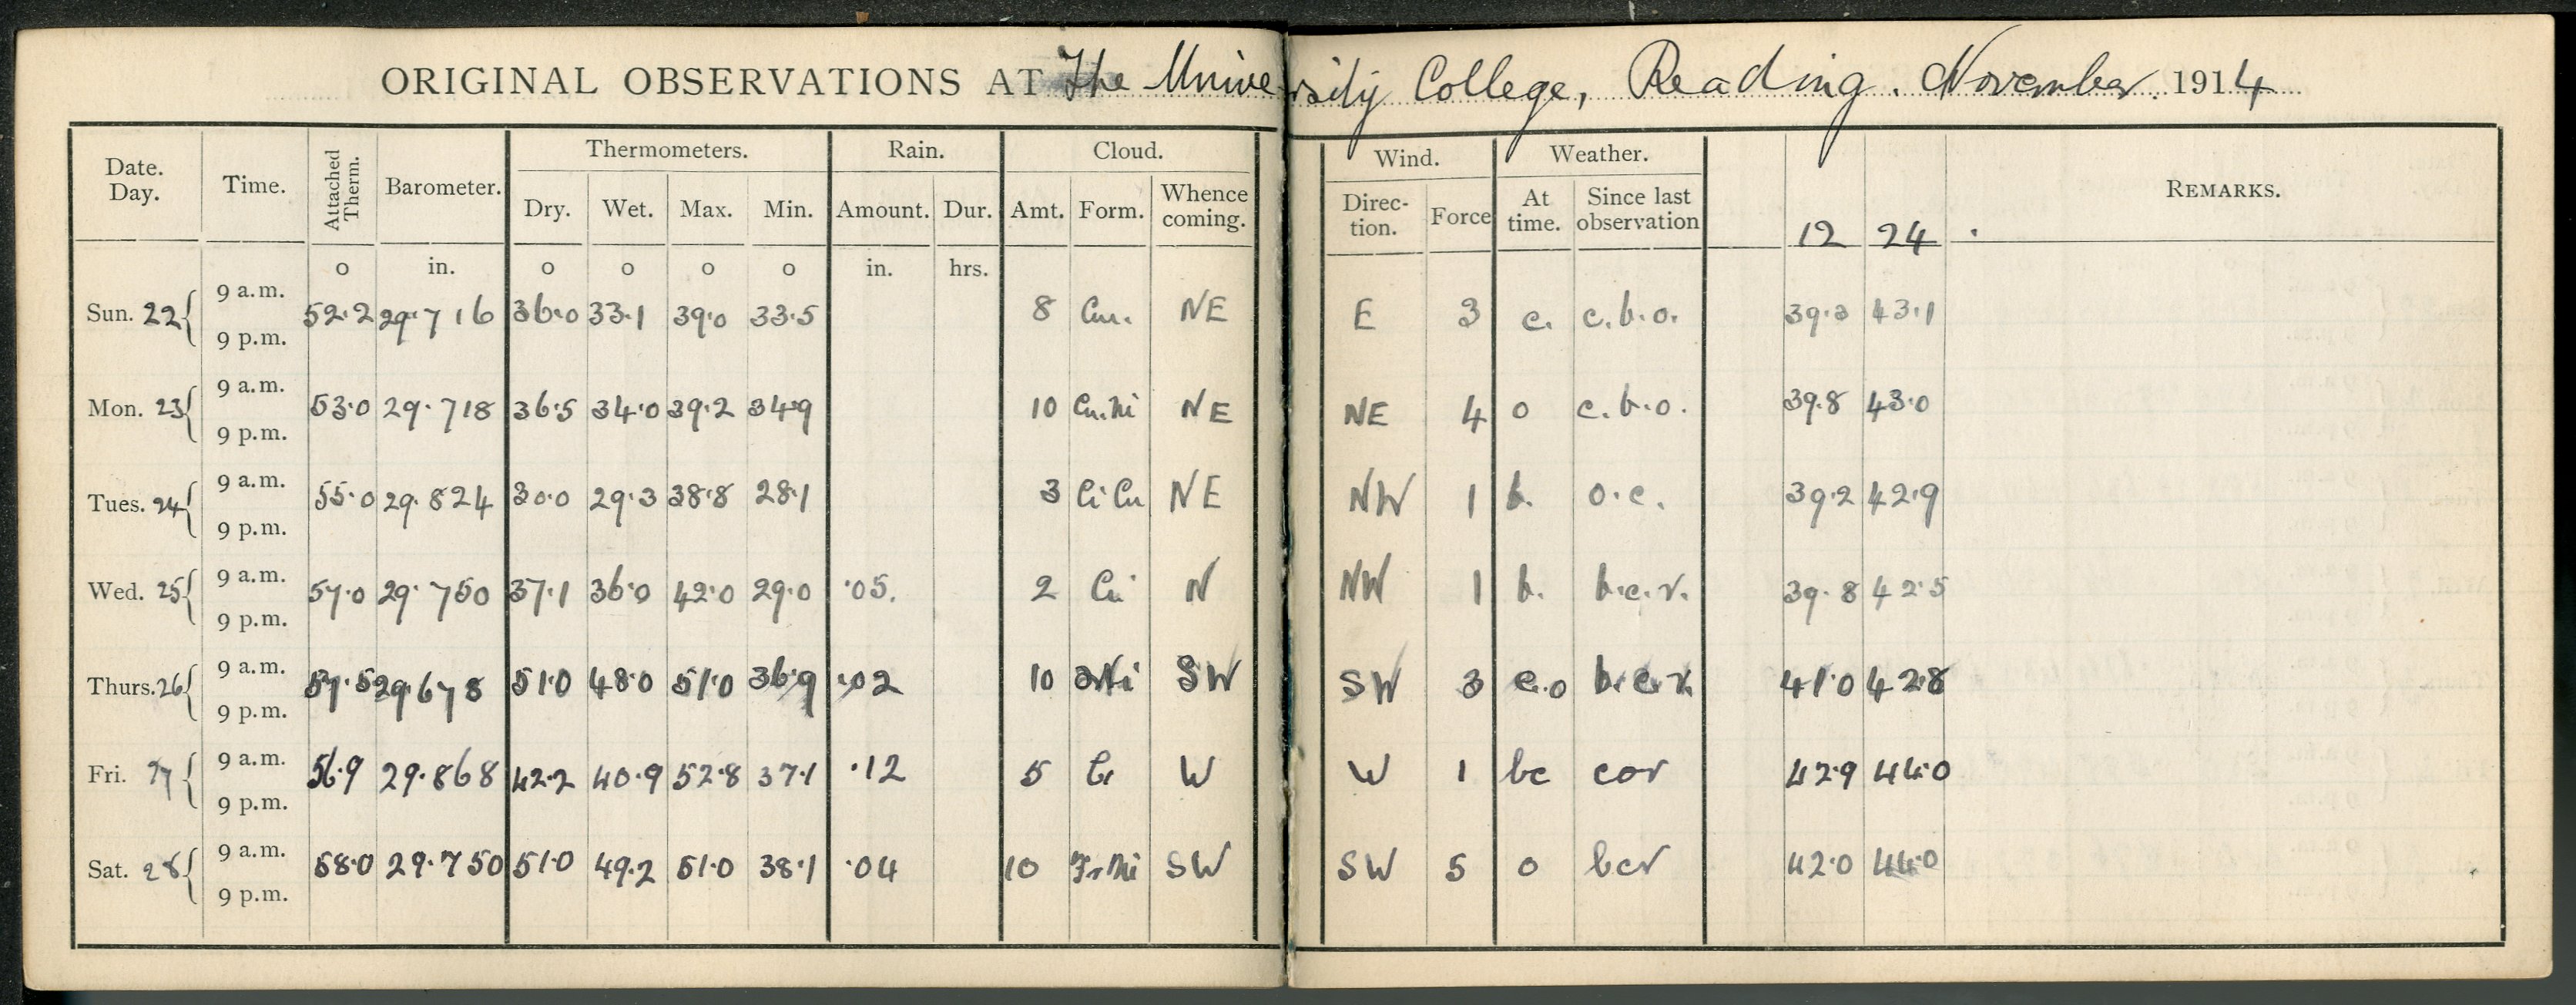 ORIGINAL OBSERVATIONS AT The University College, Reading. November 1914
Date. Day. Time. Attached Therm. Barometer. Thermometers. Rain. Cloud. Wind. Weather. REMARKS.
Dry. Wet. Max. Min. Amount. Dur. Amt. Form. Whence coming. Direction. Force At time. Since last observation 12 24
o in. o o o o in. hrs.
Sun. 22 9 a.m. 52.2 29.716 36.0 33.1 39.0 33.5 8 Cu. NE E 3 c. c.b.o. 39.3 43.1
9 p.m.
Mon. 23 9 a.m. 53.0 29.718 36.5 34.0 39.2 34.9 10 Cu.Ni NE NE 4 o c.b.o. 39.8 43.0
9 p.m.
Tues. 24 9 a.m. 55.0 29.824 30.0 29.3 38.8 28.1 3 Ci Cu NE NW 1 b. o.c. 39.2 42.9
9 p.m.
Wed. 25 9 a.m. 57.0 29.750 37.1 36.0 42.0 29.0 .05. 2 Ci N NW 1 b. b.c.r. 39.8 42.5
9 p.m.
Thurs. 26 9 a.m. 57.5 29.678 51.0 48.0 51.0 36.9 .02 10 SW SW 3 c.o b.c.r. 41.0 42.8
9 p.m.
Fri. 27 9 a.m. 56.9 29.868 42.2 40.9 52.8 37.1 .12 5 W W 1 bc cor 42.9 44.0
9 p.m.
Sat. 28 9 a.m. 58.0 29.750 51.0 49.2 51.0 38.1 .04 10 Fr.Ni SW SW 5 o bcr 42.0 44.0
9 p.m.